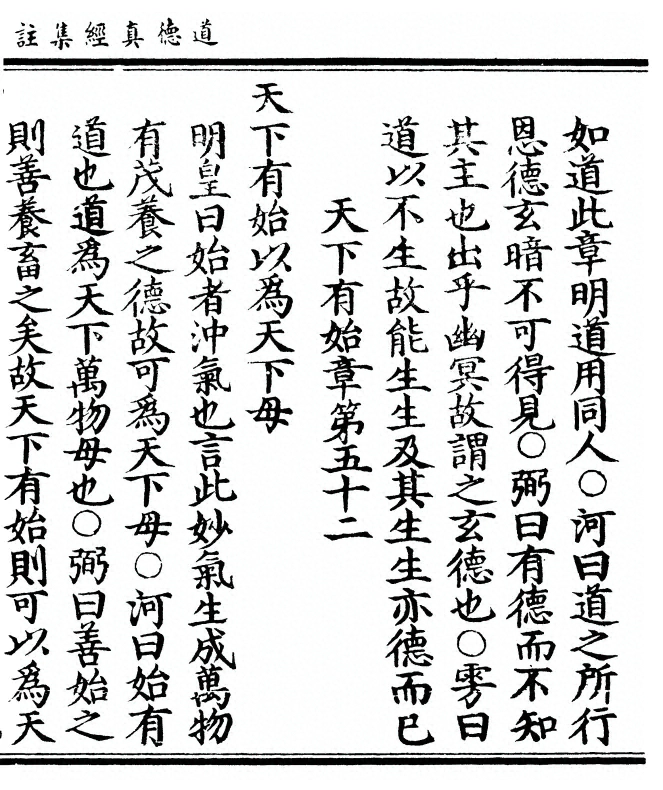 道德真經集註
如道此章明道用同人○河曰道之所行
恩德玄暗不可得見○弼曰有德而不知
其主也出乎幽冥故謂之玄德也○雱曰
道以不生故能生生及其生生亦德而已
天下有始章第五十二
天下有始以為天下母
明皇曰始者沖氣也言此妙氣生成萬物
有茂養之德故可為天下母○河曰始有
道也道為天下萬物母也○弼曰善始之
則善養畜之矣故天下有始則可以為天